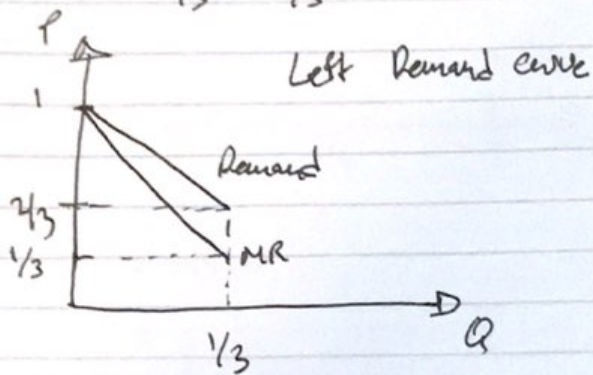 P
Left Demand curve
1
Demand
2/3
1/3
MR
1/3
Q